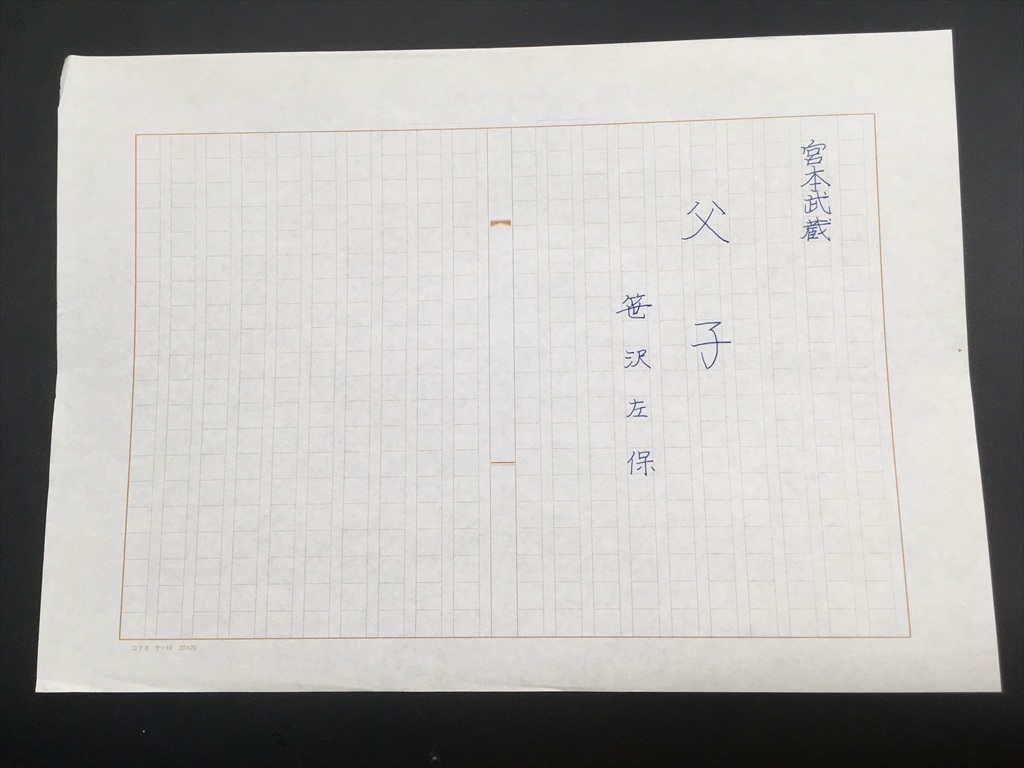 宮本武蔵
父子
笹沢左保
コクヨ ケー10 20×20